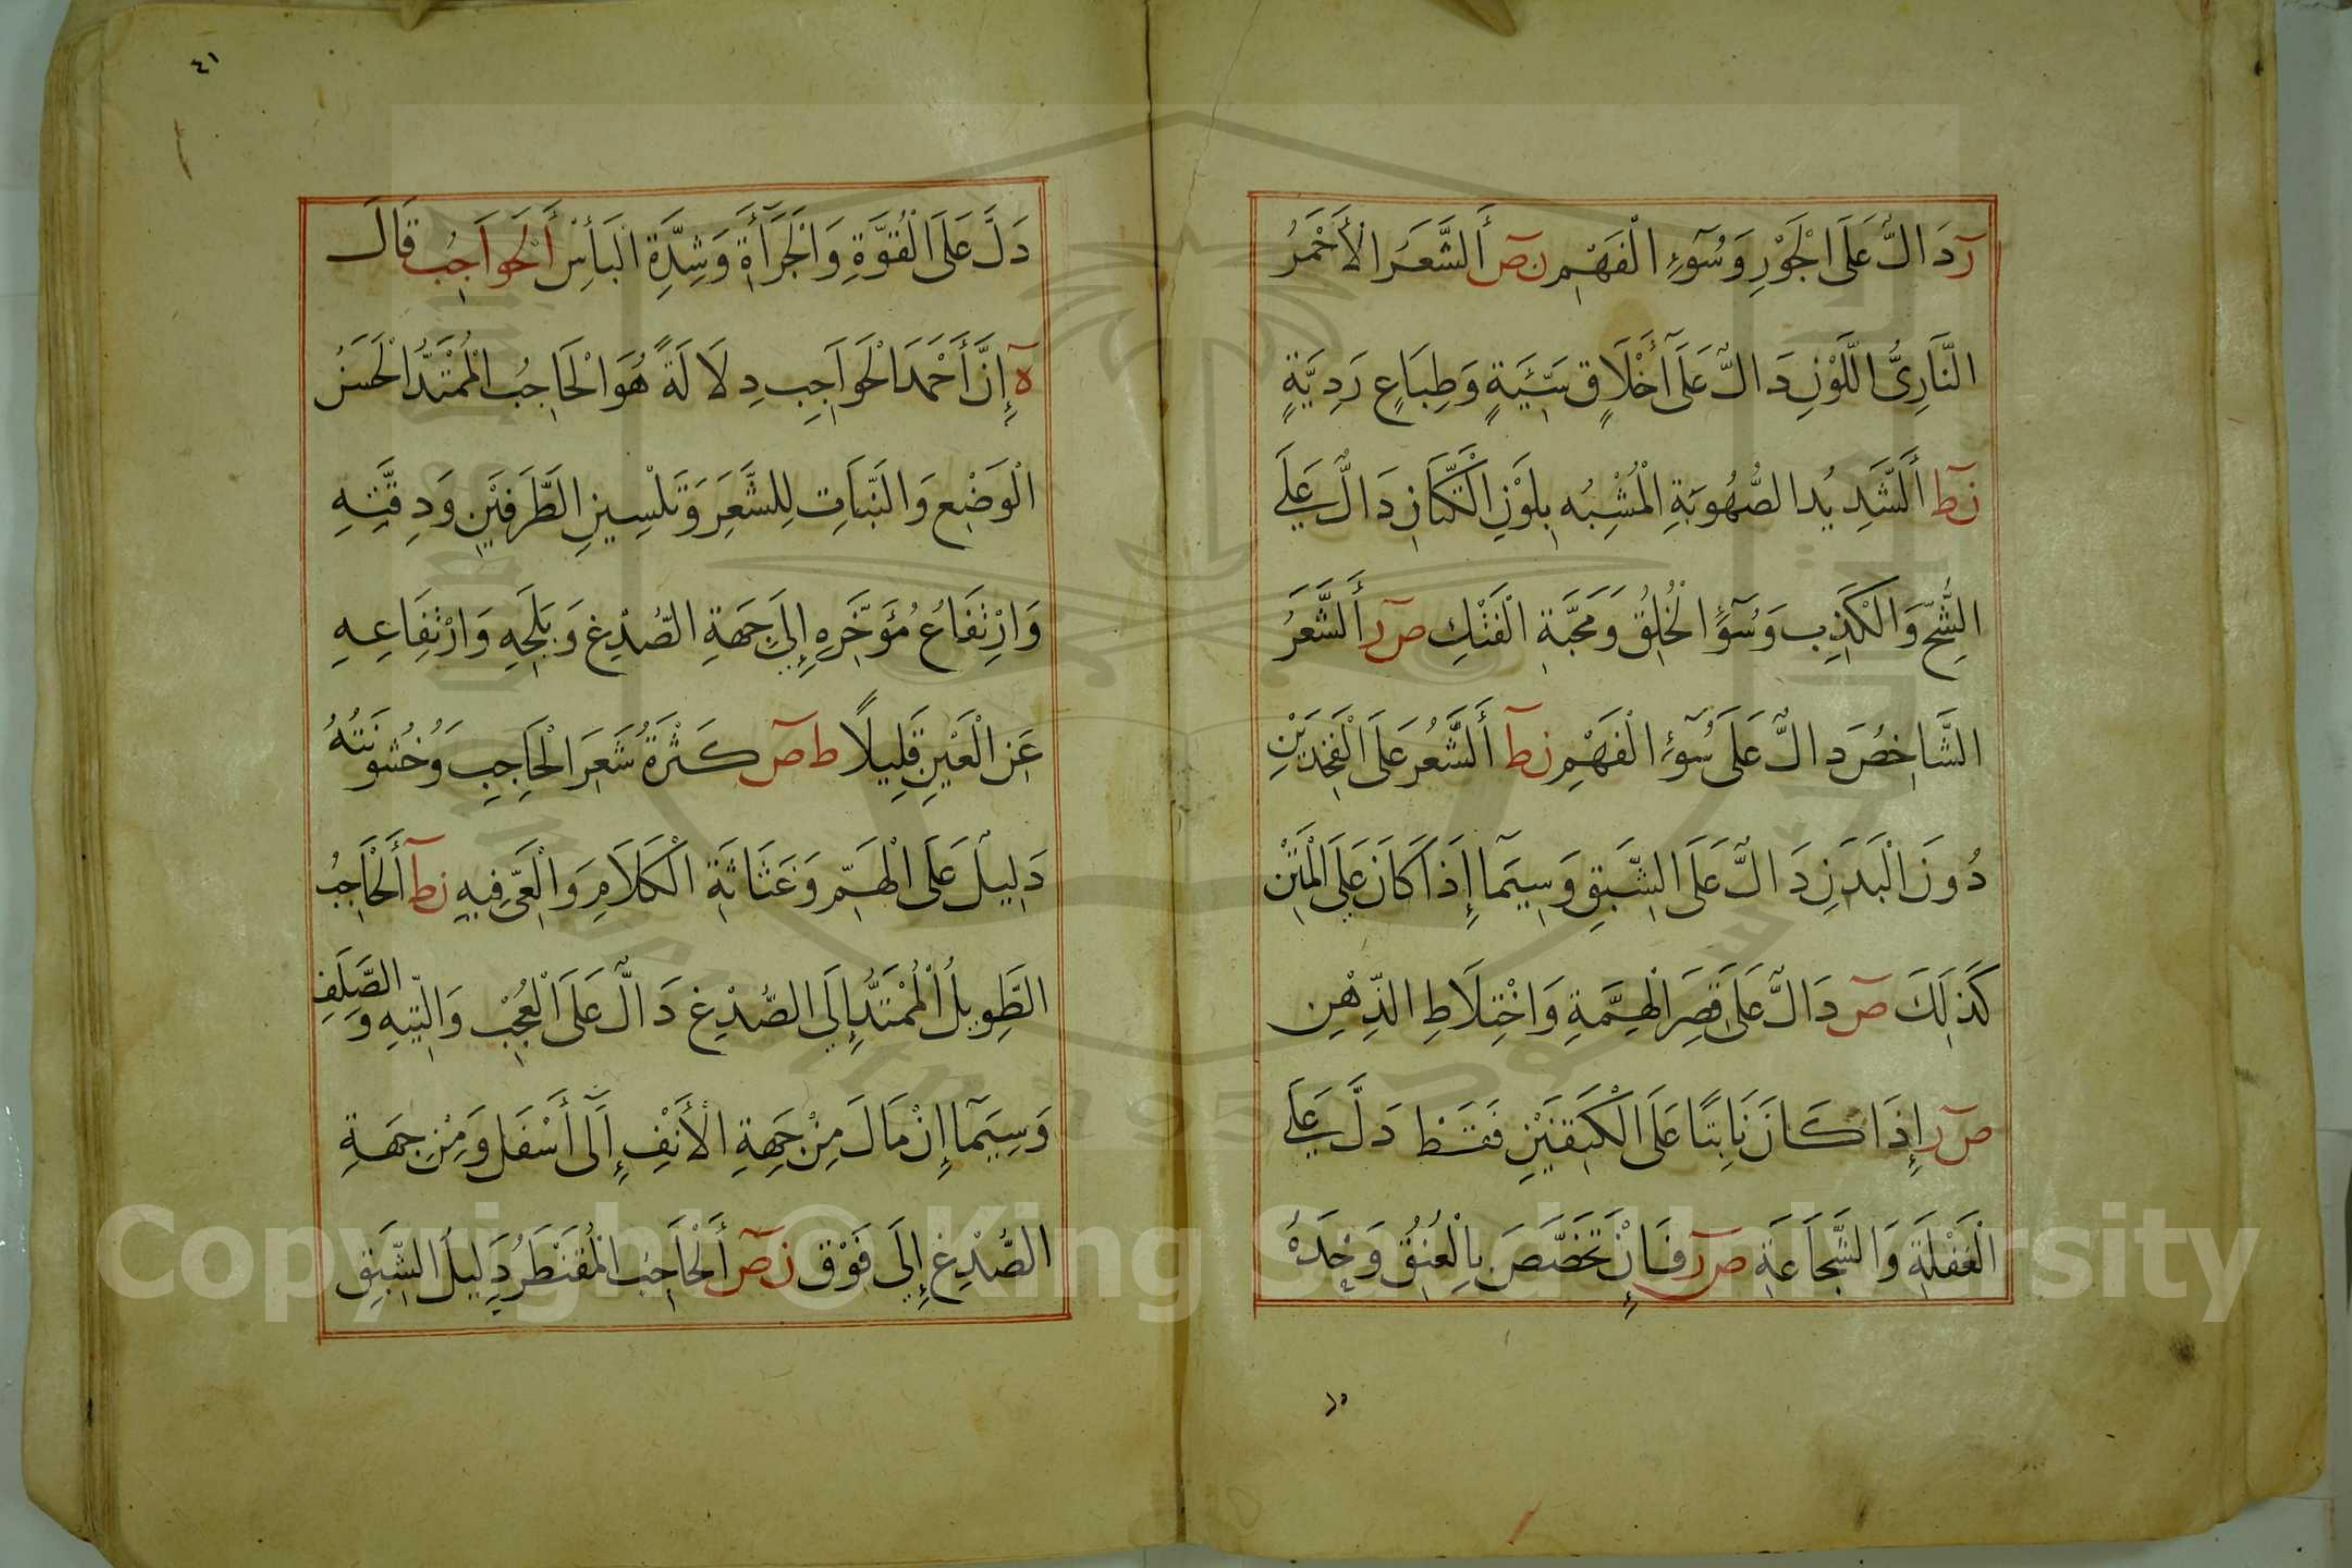 رَ دَالٌّ عَلَى الْجَوْرِ وَسُوءِ الْفَهْمِ ن ص أَلشَّعَرُ الْأَحْمَرُ
النَّارِيُّ اللَّوْنِ دَالٌّ عَلَى أَخْلَاقٍ سَيِّئَةٍ وَطِبَاعٍ رَدِيَّةٍ
ن ط أَلشَّدِيدُ الصُّهُوبَةِ الْمُشْبِهُ بِلَوْنِ الْكَتَّانِ دَالٌّ عَلَى
الشُّحِّ وَالْكَذِبِ وَسُوءِ الْخُلُقِ وَمَحَبَّةِ الْفَتْكِ ص ر أَلشَّعَرُ
الشَّاخِصُ دَالٌّ عَلَى سُوءِ الْفَهْمِ ن ط أَلشَّعَرُ عَلَى الْفَخِذَيْنِ
دُونَ الْبَدَنِ دَالٌّ عَلَى الشَّبَقِ وَسِيَّمَا إِذَا كَانَ عَلَى الْمَتْنِ
كَذَلِكَ ص دَالٌّ عَلَى قِصَرِ الْهِمَّةِ وَاخْتِلَاطِ الذِّهْنِ
ص ر إِذَا كَانَ نَابِتًا عَلَى الْكَتِفَيْنِ فَقَطْ دَلَّ عَلَى
الْغَفْلَةِ وَالشَّجَاعَةِ ص ر فَإِنْ تَخَصَّصَ بِالْعُنُقِ وَحْدَهُ
٤١
دَلَّ عَلَى الْقُوَّةِ وَالْجَرَأَةِ وَشِدَّةِ الْبَأْسِ أَلْحَوَاجِبُ قَالَ
ه إِنَّ أَحْمَدَ الْحَوَاجِبِ دِلَالَةً هُوَ الْحَاجِبُ الْمُمْتَدُّ الْحَسَنُ
الْوَضْعِ وَالنَّبَاتِ لِلشَّعَرِ وَتَلْسِينِ الطَّرَفَيْنِ وَدِقَّتِهِ
وَارْتِفَاعُ مُؤَخَّرِهِ إِلَى جِهَةِ الصُّدْغِ وَبَلَجِهِ وَارْتِفَاعِهِ
عَنِ الْعَيْنِ قَلِيلًا ط ص كَثْرَةُ شَعَرِ الْحَاجِبِ وَخُشُونَتُهُ
دَلِيلٌ عَلَى الْهَمِّ وَغَثَاثَةِ الْكَلَامِ وَالْعَيِّ فِيهِ ن ط أَلْحَاجِبُ
الطَّوِيلُ الْمُمْتَدُّ إِلَى الصُّدْغِ دَالٌّ عَلَى الْعُجْبِ وَالتِّيهِ وَ الصَّلَفِ
وَسِيَّمَا إِنْ مَالَ مِنْ جِهَةِ الْأَنْفِ إِلَى أَسْفَلَ وَمِنْ جِهَةِ
الصُّدْغِ إِلَى فَوْقَ ن ص أَلْحَاجِبُ الْمُقَنْطَرُ دَلِيلُ الشَّبَقِ
Copyright © King Saud University